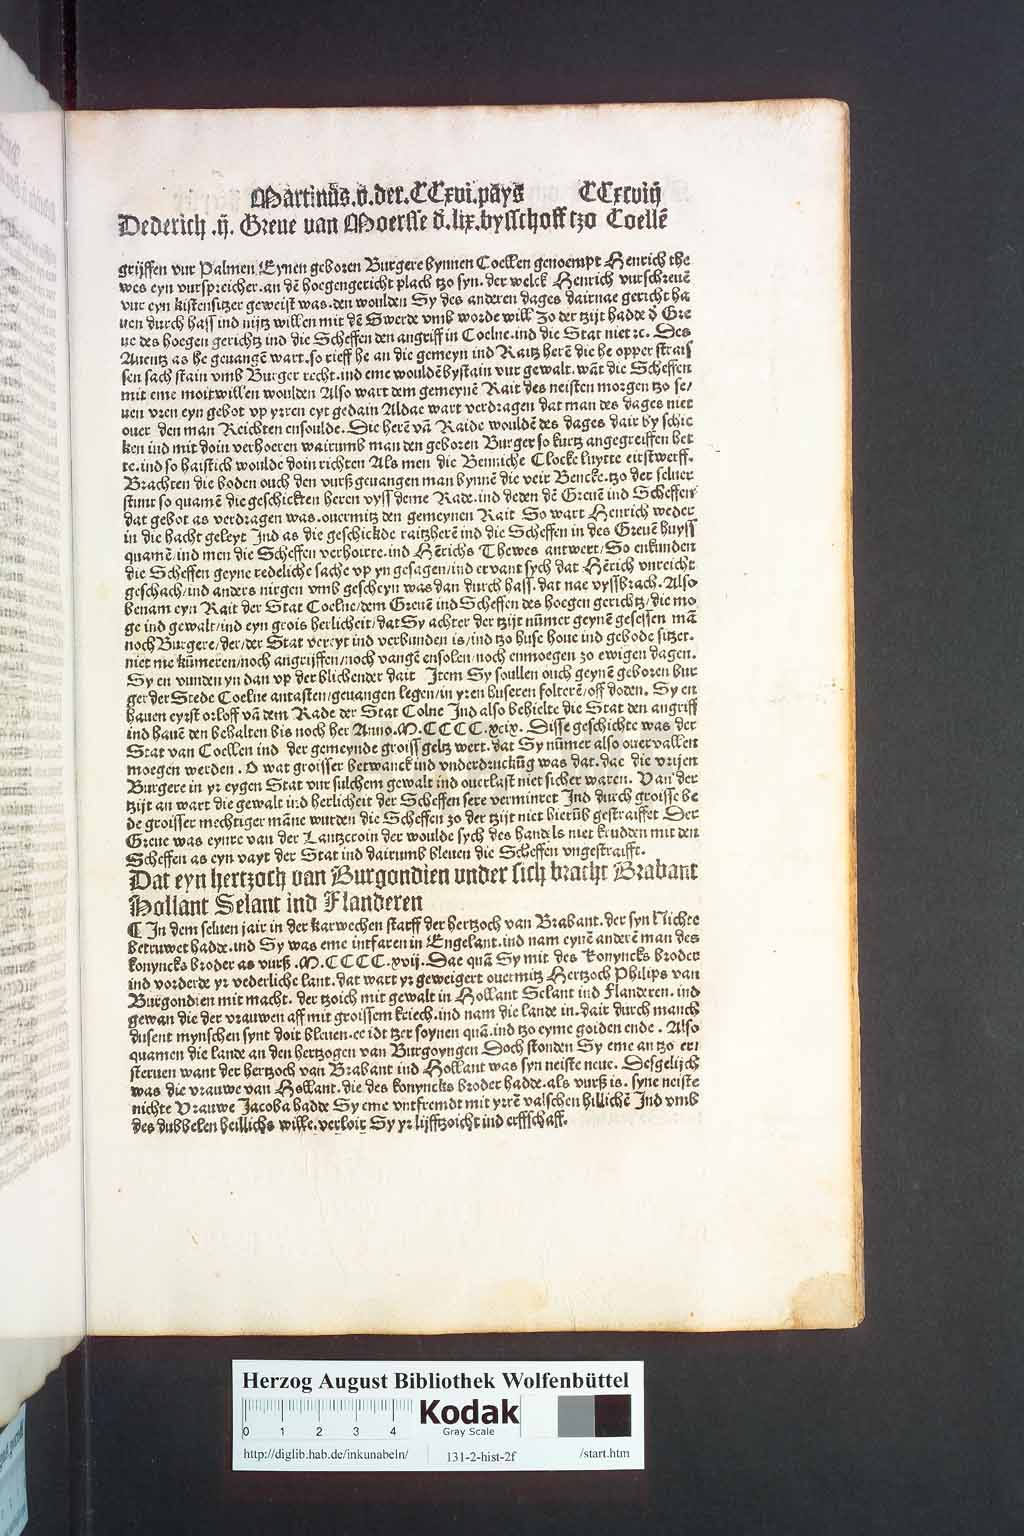 Martinus.d.der.CCxvi.pays CCxcviij
Dederich .ij. Greue van Moersse d.lix.bysschoff tzo Coellē
grijffen vur Palmen Eynen geboren Burgere bynnen Coellen genoempt Henrich the
wes eyn vurspreicher.an dē hoegengericht plach tzo syn.der welck Henrich vurschreuē
vur eyn kistensitzer geweist was.den woulden Sy des anderen dages dairnae gericht ha
uen durch hass ind nijtz willen mit dē Swerde vmb worde will zo der tzijt hadde d Gre
ue des hoegen gerichtz ind die Scheffen den angriff in Coelne.ind die Stat niet ꝛc. Des
Auentz as he geuangē wart.so rieff he an die gemeyn ind Raitz herē die he opper strais
sen sach stain vmb Burger recht.ind eme wouldē bystain vur gewalt.wāt die Scheffen
mit eme moitwillen woulden Also wart dem gemeynē Rait des neisten morgen tzo se/
uen vren eyn gebot vp yrren eyt gedain Aldae wart verdragen dat man des dages niet
ouer den man Reichten ensoulde. Die herē vā Raide wouldē des dages dair by schic
ken ind mit doin verhoeren wairumb man den geboren Burger so kurtz angegreiffen het
te.ind so haistich woulde doin richten Als men die Benniche Clocke luytte eirstwerff.
Brachten die boden ouch den vurß geuangen man bynnē die veir Bencke.tzo der seluer
stunt so quamē die geschickten heren vyss deme Rade.ind deden dē Greuē ind Scheffen
dat gebot as verdragen was.ouermitz den gemeynen Rait So wart Henrich weder
in die hacht geleyt Ind as die geschickde raitzherē ind die Scheffen in des Greuē huyss
quamē/ind men die Scheffen verhoirte.ind Hērichs Thewes antwert/So enkunden
die Scheffen geyne redeliche sache vp yn gesagen/ind ervant sych dat Hērich vnreicht
geschach/ind anders nirgen vmb gescheyn was dan durch hass.dat nae vyssbrach. Also
benam eyn Rait der Stat Coelne/dem Greuē ind Scheffen des hoegen gerichtz/die mo
ge ind gewalt/ind eyn grois herlicheit/dat Sy achter der tzijt nūmer geynē gesessen mā
noch Burgere/der/der Stat vereyt ind verbunden is/ind tzo huse houe ind gebode sitzet.
niet me kūmeren/noch angrijffen/noch vangē ensolen/noch enmoegen zo ewigen dagen.
Sy en vunden yn dan vp der blichender dait Item Sy soullen ouch geynē geboren bur
ger der Stede Coelne antasten/geuangen legen/in yren huseren folterē/off doden. Sy en
hauen eyrst orloff vā dem Rade der Stat Colne Ind also behielte die Stat den angriff
ind hauē den behalten bis noch her Anno.M.CCCC.xcix. Disse geschichte was der
Stat van Coellen ind der gemeynde groiss geltz wert.dat Sy nūmer also ouervallen
moegen werden . O wat groisser betwanck ind vnderdruckūg was dat.dae die vrijen
Burgere in yr eygen Stat vur sulchem gewalt ind ouerlast niet sicher waren. Van der
tzijt an wart die gewalt ind herlicheit der Scheffen sere vermynret Ind durch groisse be
de groisser mechtiger māne wurden die Scheffen zo der tzijt niet hierūb gestraiffet Der
Greue was eynre van der Lantzcroin der woulde sych des handels niet krudden mit den
Scheffen as eyn vayt der Stat ind dairumb bleuen die Scheffen vngestraifft.
Dat eyn hertzoch van Burgondien vnder sich bracht Brabant
Hollant Selant ind Flanderen
¶ In dem seluen jair in der karwechen starff der hertzoch van Brabant.der syn Nichte
betruwet hadde.ind Sy was eme intfaren in Engelant.ind nam eynē anderē man des
konyncks broder as vurß.M.CCCC.xvij. Dae quā Sy mit des konyncks broder
ind vorderde yr vederliche lant.dat wart yr geweigert ouermitz Hertzoch Philips van
Burgondien mit macht. der tzoich mit gewalt in Hollant Selant ind Flanderen. ind
gewan die der vrauwen aff mit groissem kriech.ind nam die lande in.dair durch manch
dusent mynschen synt doit bleuen.ee idt tzer soynen quā.ind tzo eyme goiden ende . Also
quamen die lande an den hertzogen van Burgoyngen Doch stonden Sy eme an tzo eri
steruen want der hertzoch van Brabant ind Hollant was syn neiste neue. Desgelijch
was die vrauwe van Hollant.die des konyncks broder hadde.als vurß is. syne neiste
nichte Vrauwe Jacoba hadde Sy eme vntfremdt mit yrrē valschen hillichē Ind vmb
des dubbelen heilichs wille.verloir Sy yr lijfftzoicht ind erffschaff.
Herzog August Bibliothek Wolfenbüttel
0 1 2 3 4
Kodak
Gray Scale
http://diglib.hab.de/inkunabeln/ 131-2-hist-2f /start.htm